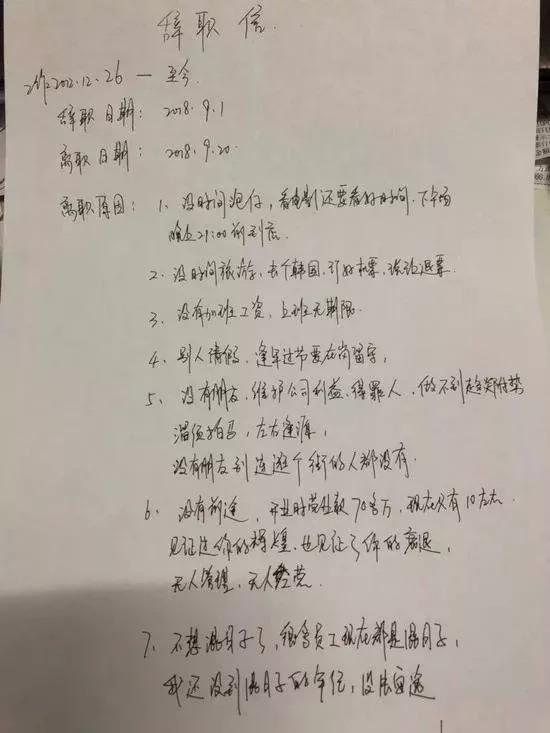 辞职信
工作2012.12.26 — 至今
辞职日期： 2018.9.1
离职日期： 2018.9.20
离职原因： 1、没时间泡仔，看电影还要看好时间，下午场
晚上21:00前到店.
2、没时间旅游，去个韩国，订好机票，谈论退票.
3、没有加班工资，上班无期限
4、别人请假，逢年过节要在岗留守，
5、没有朋友，维护公司利益，得罪人，做不到趋炎附势
溜须拍马，左右逢源，
没有朋友到连逛个街的人都没有.
6、没有前途，开业时营业款70多万，现在只有10左右
见证过你的辉煌，也见证了你的衰退，
无人管理，无人经营.
7、不想混日子了，很多员工现在都是混日子，
我还没到混日子的年纪，没法